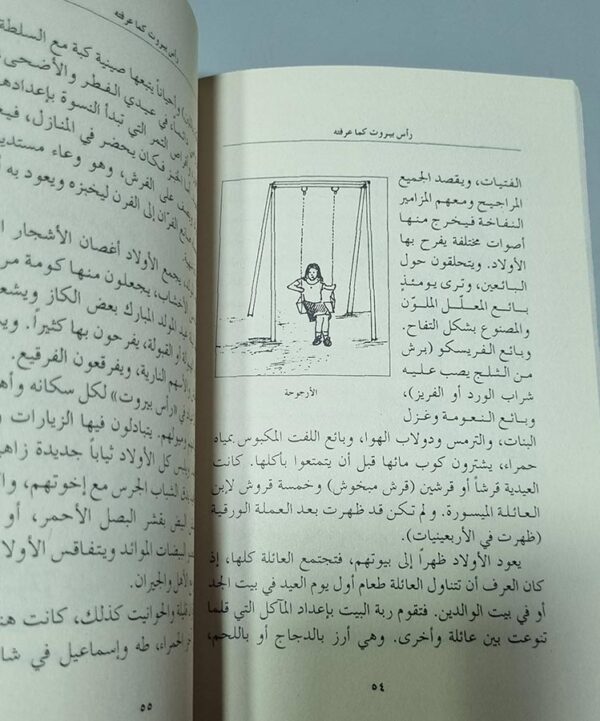 رأس بيروت كما عرفته
الفتيات، ويقصد الجميع
المراجيح ومعهم المزامير
النفاخة فيخرج منها
أصوات مختلفة يفرح بها
الأولاد. ويتحلقون حول
البائعين، وترى يومئذٍ
بائع المعلّل الملوّن
والمصنوع بشكل التفاح.
وبائع الفريسكو (برش
من الثلج يصب عليه
شراب الورد أو الفريز)،
وبائع النعومة وغزل
الأرجوحة
البنات، والترمس ودولاب الهوا، وبائع اللفت المكبوس بمياه
حمراء، يشترون كوب مائها قبل أن يتمتعوا بأكلها. كانت
العيدية قرشاً أو قرشين (قرش مبخوش) وخمسة قروش لإبن
العائلة الميسورة. ولم تكن قد ظهرت بعد العملة الورقية
(ظهرت في الأربعينيات).
يعود الأولاد ظهراً إلى بيوتهم، فتجتمع العائلة كلها، إذ
كان العرف أن تتناول العائلة طعام أول يوم العيد في بيت الجد
أو في بيت الوالدين. فتقوم ربة البيت بإعداد المآكل التي قلما
تنوعت بين عائلة وأخرى. وهي أرز بالدجاج أو باللحم،
٥٤
رأس بيروت كما عرفته
وأحياناً يتبعها صينية كبة مع السلطة
في عيدي الفطر والأضحى
التمر التي تبدأ النسوة بإعدادها
فكان يحضر في المنازل،
على الفرش، وهو وعاء مستدير
الفرّان إلى الفرن ليخبزه ويعود به
يجمع الأولاد أغصان الأشجار
يجعلون منها كومة
عيد المولد المبارك بعض الكاز
أو القبولة، يفرحون بها كثيراً.
الأسهم النارية، ويفرقعون الفرقيع.
في «رأس بيروت» لكل سكانه
يتبادلون فيها الزيارات
كل الأولاد ثياباً جديدة
الشباب الجرس مع إخوتهم،
بقشر البصل الأحمر، أو
البيضات الموائد ويتفاقس الأولاد
والجيران.
والحوانيت كذلك، كانت
الحمراء، طه وإسماعيل في
٥٥